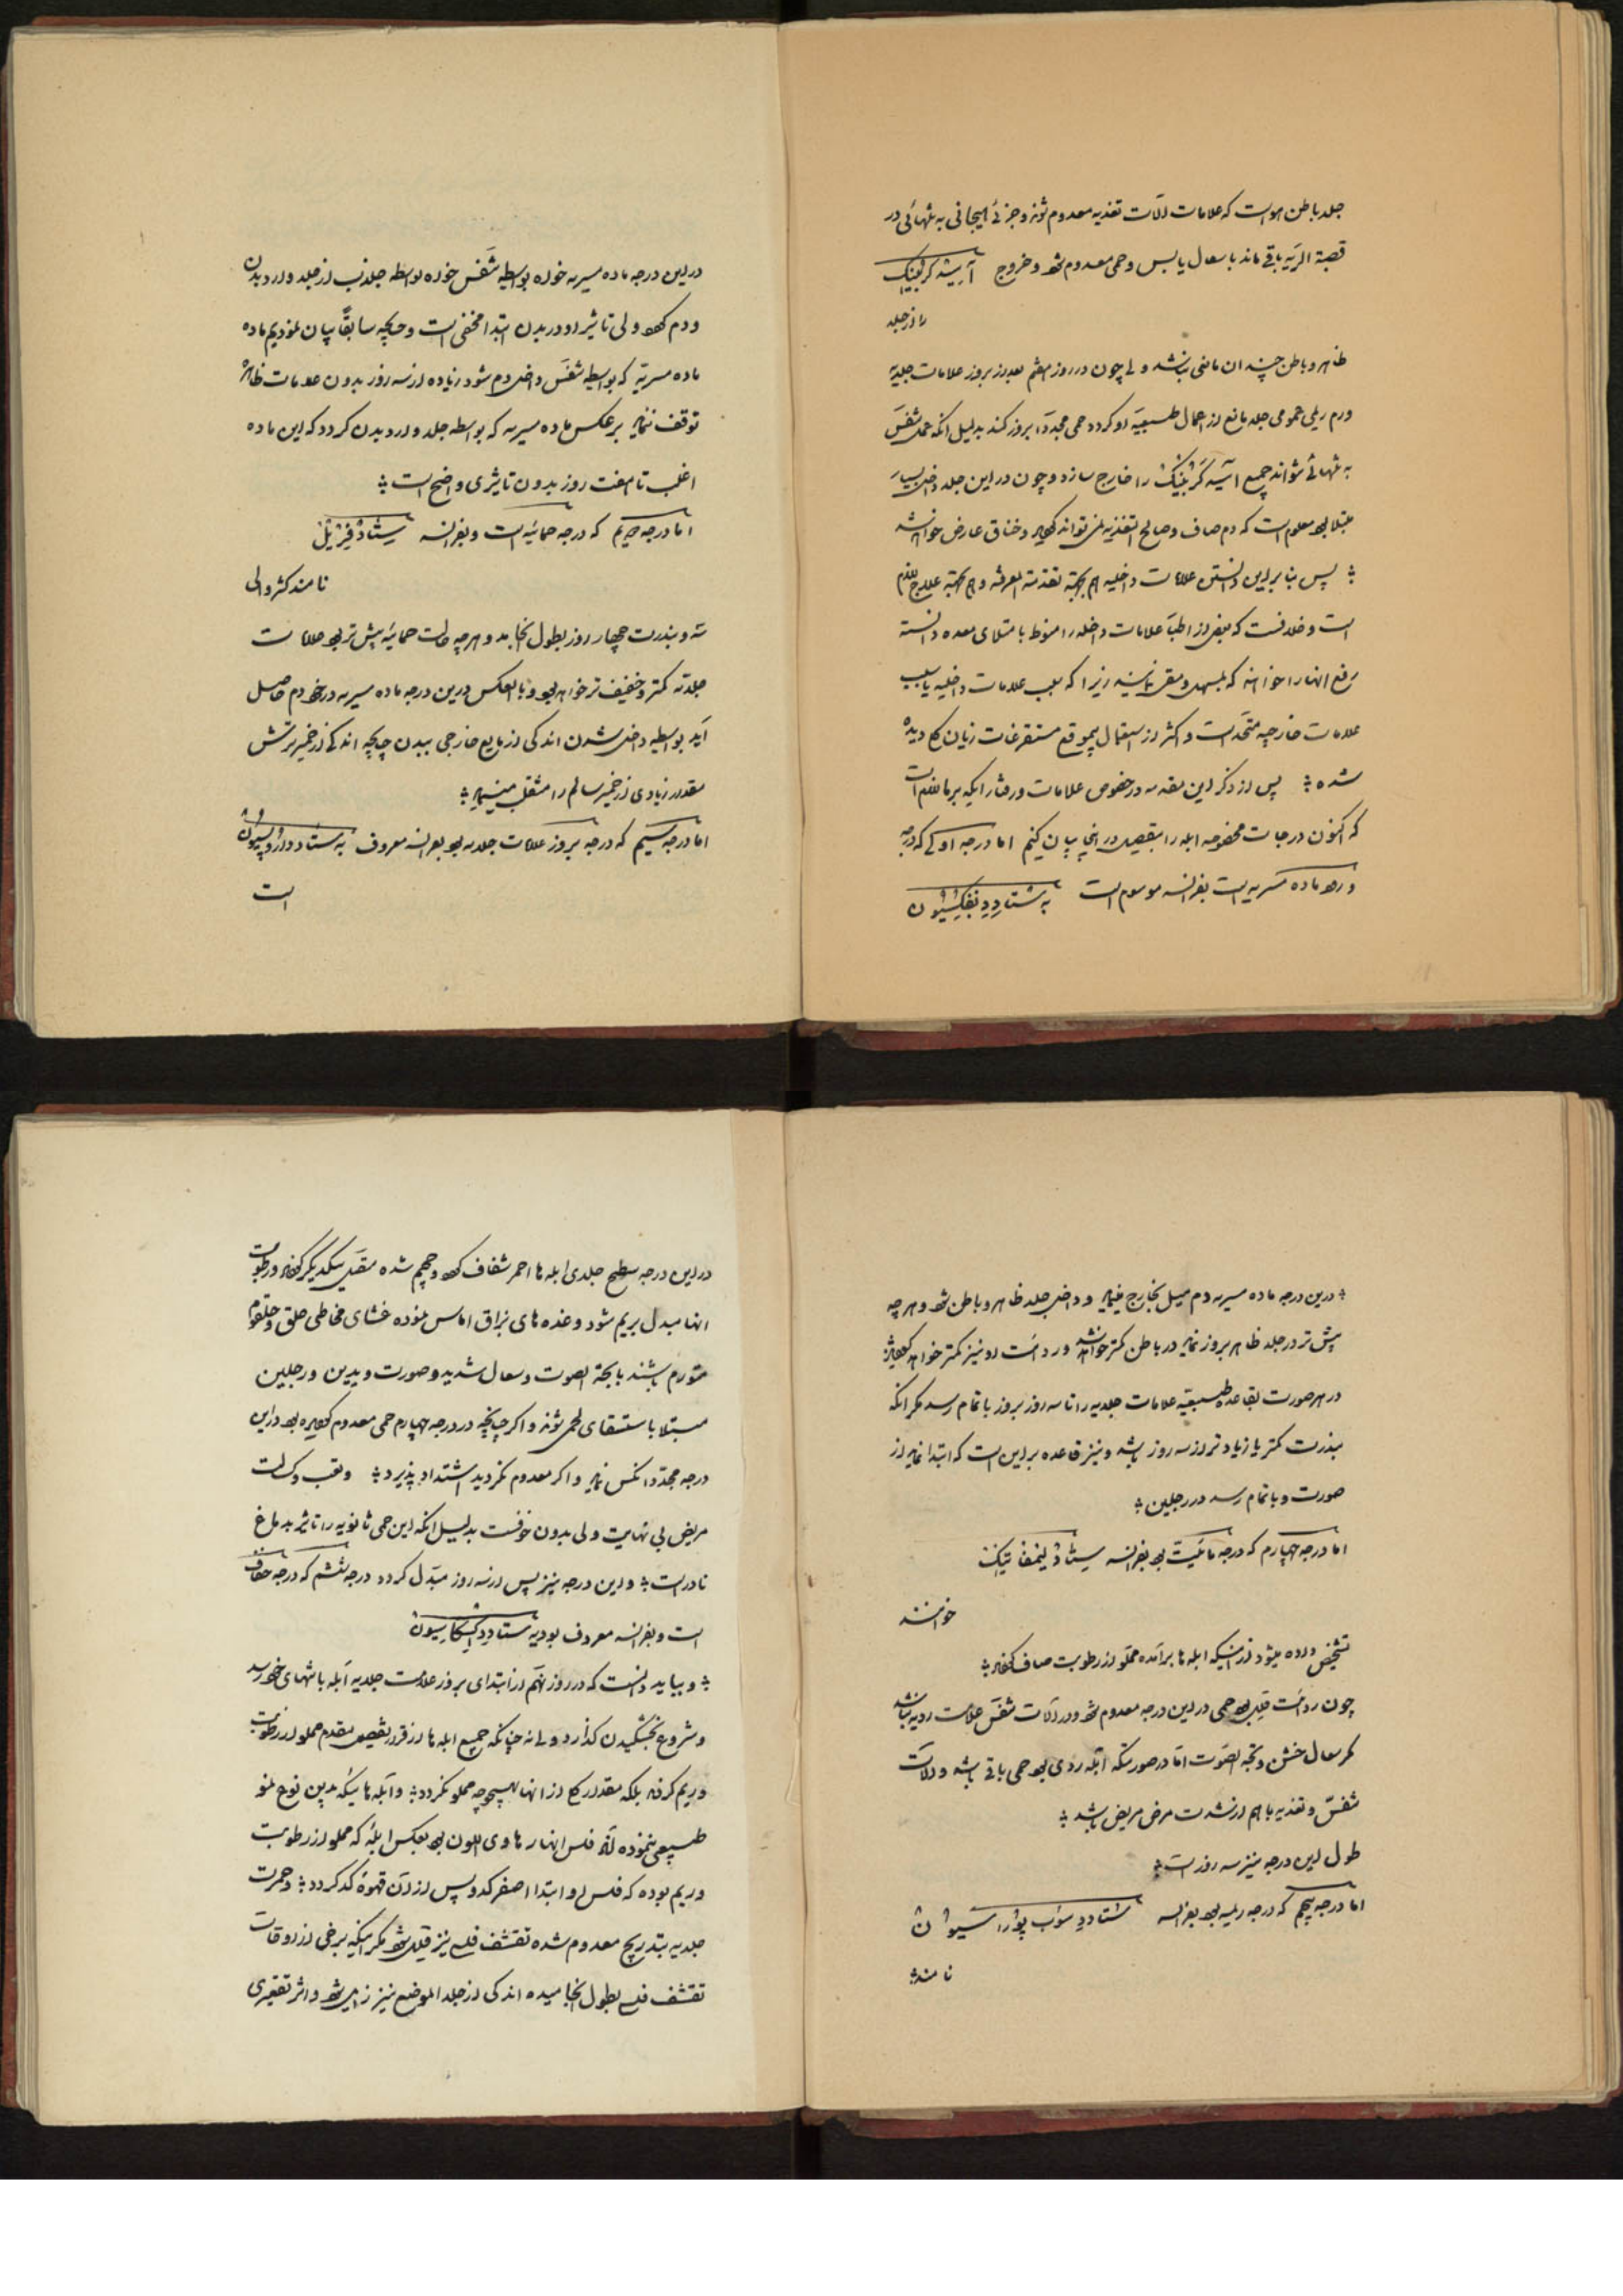 جلد باطن هواست که علامات آلات تغذیه معدوم شوند و جزئی هیجانی به تنهائی در
قصبة الریه باقی ماند با سعال یابس و حمی معدوم شود و خروج آسید کربنیک
را از جلد
ظاهر و باطن چندان مانعی نباشد ولی چون در روز هفتم بعد از بروز علامات جلدیه
ورم ریمی عمومی جلد مانع از اعمال طبیعیه او کردد حمی مجددا بروز کند بدلیل آنکه عمل تنفس
به تنهائی نتواند جمیع آسید کربنیک را خارج سازد و چون در این جلد داخلی بسیار
مبتلا بود معلوم است که دم صاف و صالح التغذیه نمی تواند کردید و خناق عارض خواهد شد
؛ پس بنا براین دانستن علامات داخلیه هم بجهة تقدمة المعرفه و هم بجهة علاج لازم
است و خلافست که بعضی از اطبا علامات داخله را منوط بامتلای معده دانسته
رفع آنها را خواهند که بمسهل و مقی نمایند زیرا که سبب علامات داخلیه با سبب
علامات خارجیه متحد است و اکثر از استعمال بیموقع مستفرغات زیان کلی دیده
شده ؛ پس از ذکر این مقدمه در خصوص علامات و رفتار آبله بر ما لازم است
که اکنون درجات مخصوصه آبله را بتفصیل در اینجا بیان کنیم اما درجه اولی که درجه
ورود ماده مسریه است بفرانسه موسوم است به ستاد دِ نفکسیون
در این درجه ماده مسریه خواه بواسطه تنفس خواه بواسطه جلد جذب از جلد وارد بدن
و دم کردد ولی تاثیر او در بدن ابتدا مخفی است و چنانچه سابقا بیان نمودیم ماده
ماده مسریه که بواسطه تنفس داخل دم شود زیاده از سه روز بدون علامات ظاهره
توقف ننماید برعکس ماده مسریه که بواسطه جلد وارد بدن کردد که این ماده
اغلب تا هفت روز بدون تاثیری واضح است ؛
اما درجه دویم که درجه حمائیه است و بفرانسه ستاد فبریل
نامند کثر والی
سه و بندرت چهار روز بطول انجامد و هرچه حالت حمائیه بیش تر بود علامات
جلدیه کمتر و خفیف تر خواهد بود و بالعکس درین درجه ماده مسریه در خود دم حاصل
آید بواسطه داخل شدن اندکی از مایع خارجی ببدن چنانچه اندکی از خمیر ترش
مقدار زیادی از خمیر سالم را منقلب مینماید ؛
اما درجه سیم که درجه بروز علامات جلدیه بود بفرانسه معروف به ستاد دارو پسیون
است
؛ درین درجه ماده مسریه دم میل بخارج مینماید و داخل جلد ظاهر و باطن شود و هرچه
بیش تر در جلد ظاهر بروز نماید در باطن کمتر خواهد شد و ردائت او نیز کمتر خواهد کردید
در هر صورت بقاعده طبیعیه علامات جلدیه را تا سه روز بروز باتمام رسد مکر آنکه
بندرت کمتر یا زیادتر از سه روز باشد و نیز قاعده بر این است که ابتدا نماید از
صورت و باتمام رسد در رجلین ؛
اما درجه چهارم که درجه مائیت بود بفرانسه ستاد لیمفاتیک
خوانند
تشخیص داده میشود از اینکه آبله ها برآمده مملو از رطوبت صاف کردند ؛
چون ردائت قلیل بود حمی در این درجه معدوم شود و در آلات تنفس علامت ردیه نباشد
مکر سعال خشن و بحة الصوت اما در صورتیکه آبله ردی بود حمی باقی باشد و آلات
تنفس و تغذیه با هم از شدت مرض مریض باشد ؛
طول این درجه نیز سه روز است ؛
اما درجه پنجم که درجه ریمیه بود بفرانسه ستاد دِ سوب پوراسیون
نامند ؛
در این درجه سطح جلدی آبله ها احمر شفاف کردد و حجیم شده متصل بیکدیکر کردند و رطوبت
آنها مبدل بریم شود و غده های بزاق آماس نموده غشای مخاطی حلق و حلقوم
متورم باشند با بحة الصوت و سعال شدید و صورت و یدین و رجلین
مبتلا باستسقای لحمی شوند و اکر چنانچه در درجه چهارم حمی معدوم کردیده بود در این
درجه مجددا نکس نماید و اکر معدوم نکردید اشتداد پذیرد ؛ و تعب و کسالت
مریض بی نهایت ولی بدون خوفست بدلیل آنکه این حمی ثانویه را تاثیر بدماغ
نادر است ؛ و این درجه نیز پس از سه روز مبدل کردد درجه ششم که درجه جفاف
است و بفرانسه معروف بود به ستاد دِ دسیکاسیون
؛ و بباید دانست که در روز نهم از ابتدای بروز علامت جلدیه آبله بانتهای خود رسد
و شروع بخشکیدن کذارد و نه چنانکه جمیع آبله ها از قرار تفصیل مقدم مملو از رطوبت
و ریم کردند بلکه مقدار کمی از آنها بهیچوجه مملو نکردد ؛ و آبله هائیکه بدین نوع نمو
طبیعی ننموده اند فلس آنها رمادی اللون بود بعکس آبله که مملو از رطوبت
و ریم بوده که فلس او ابتدا اصفر کدر و پس از آن قهوه کدر کردد ؛ و حمرت
جلدیه بتدریج معدوم شده تقشف فلسی نیز قلیل شود مکر اینکه برخی از اوقات
تقشف فلسی بطول انجامیده اندکی از جلد الموضع نیز زایل شود و اثر تقعیری